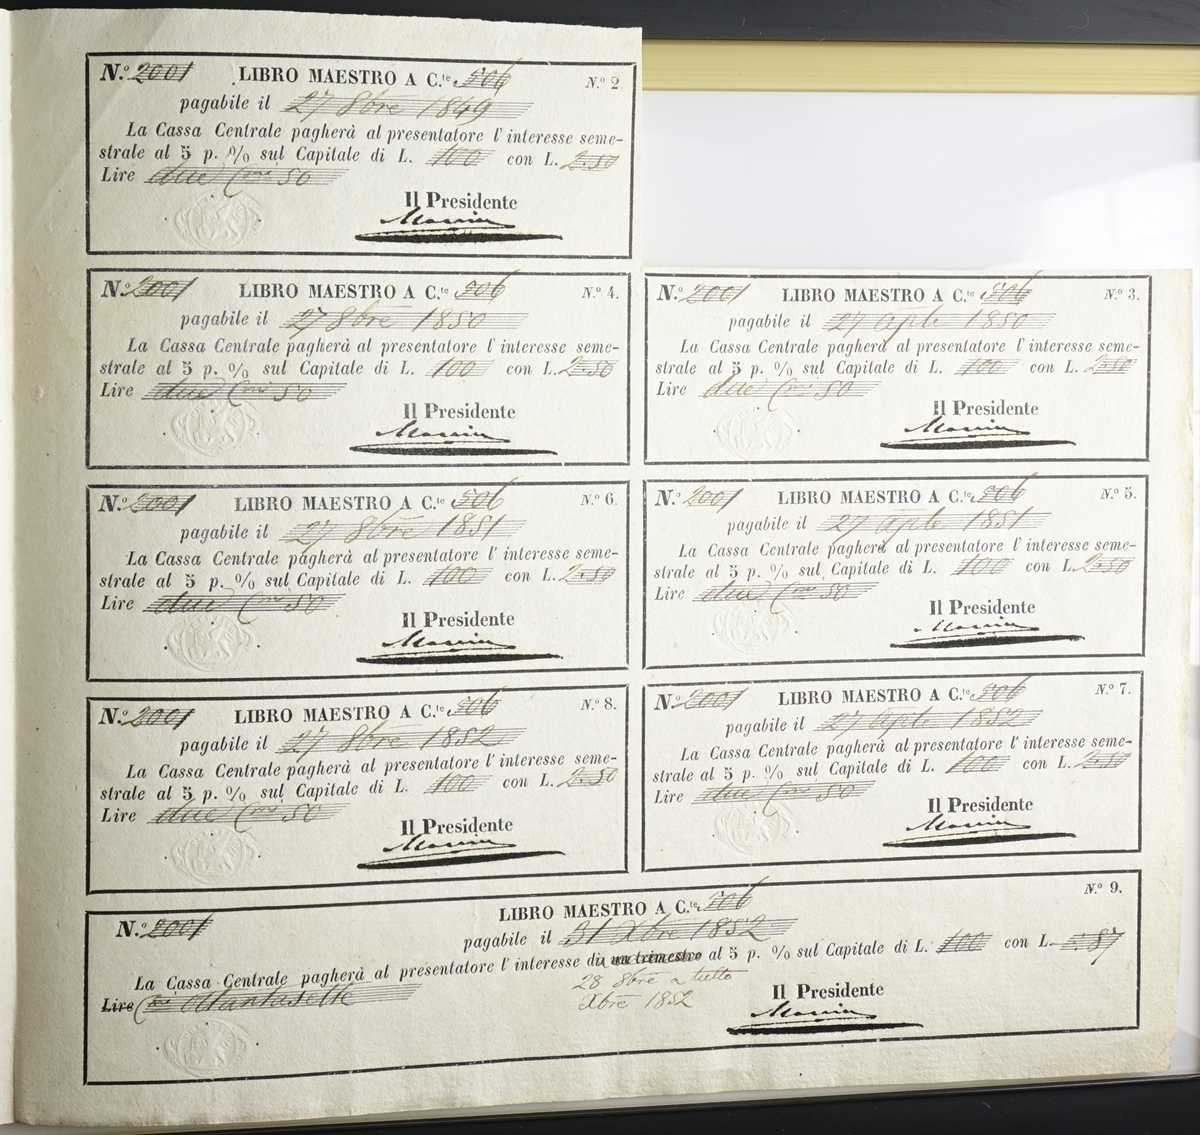 N.º 2001 LIBRO MAESTRO A C.te 506 N.º 2.
pagabile il 27 8bre 1849
La Cassa Centrale pagherà al presentatore l'interesse seme-
strale al 5 p. % sul Capitale di L. 100 con L. 2.50
Lire due Cmi 50
Il Presidente
N.º 2001 LIBRO MAESTRO A C.te 506 N.º 4.
pagabile il 27 8bre 1850
La Cassa Centrale pagherà al presentatore l'interesse seme-
strale al 5 p. % sul Capitale di L. 100 con L. 2.50
Lire due Cmi 50
Il Presidente
N.º 2001 LIBRO MAESTRO A C.te 506 N.º 3.
pagabile il 27 Aple 1850
La Cassa Centrale pagherà al presentatore l'interesse seme-
strale al 5 p. % sul Capitale di L. 100 con L. 2.50
Lire due Cmi 50
Il Presidente
N.º 2001 LIBRO MAESTRO A C.te 506 N.º 6.
pagabile il 27 8bre 1851
La Cassa Centrale pagherà al presentatore l'interesse seme-
strale al 5 p. % sul Capitale di L. 100 con L. 2.50
Lire due Cmi 50
Il Presidente
N.º 2001 LIBRO MAESTRO A C.te 506 N.º 5.
pagabile il 27 Aple 1851
La Cassa Centrale pagherà al presentatore l'interesse seme-
strale al 5 p. % sul Capitale di L. 100 con L. 2.50
Lire due Cmi 50
Il Presidente
N.º 2001 LIBRO MAESTRO A C.te 506 N.º 8.
pagabile il 27 8bre 1852
La Cassa Centrale pagherà al presentatore l'interesse seme-
strale al 5 p. % sul Capitale di L. 100 con L. 2.50
Lire due Cmi 50
Il Presidente
N.º 2001 LIBRO MAESTRO A C.te 506 N.º 7.
pagabile il 27 Aple 1852
La Cassa Centrale pagherà al presentatore l'interesse seme-
strale al 5 p. % sul Capitale di L. 100 con L. 2.50
Lire due Cmi 50
Il Presidente
N.º 9.
N.º 2001 LIBRO MAESTRO A C.te 506
pagabile il 31 Xbre 1852
La Cassa Centrale pagherà al presentatore l'interesse di un trimestre al 5 p. % sul Capitale di L. 100 con L. -.87
Lire Cmi ottantasette 28 8bre a tutto
Xbre 1852
Il Presidente